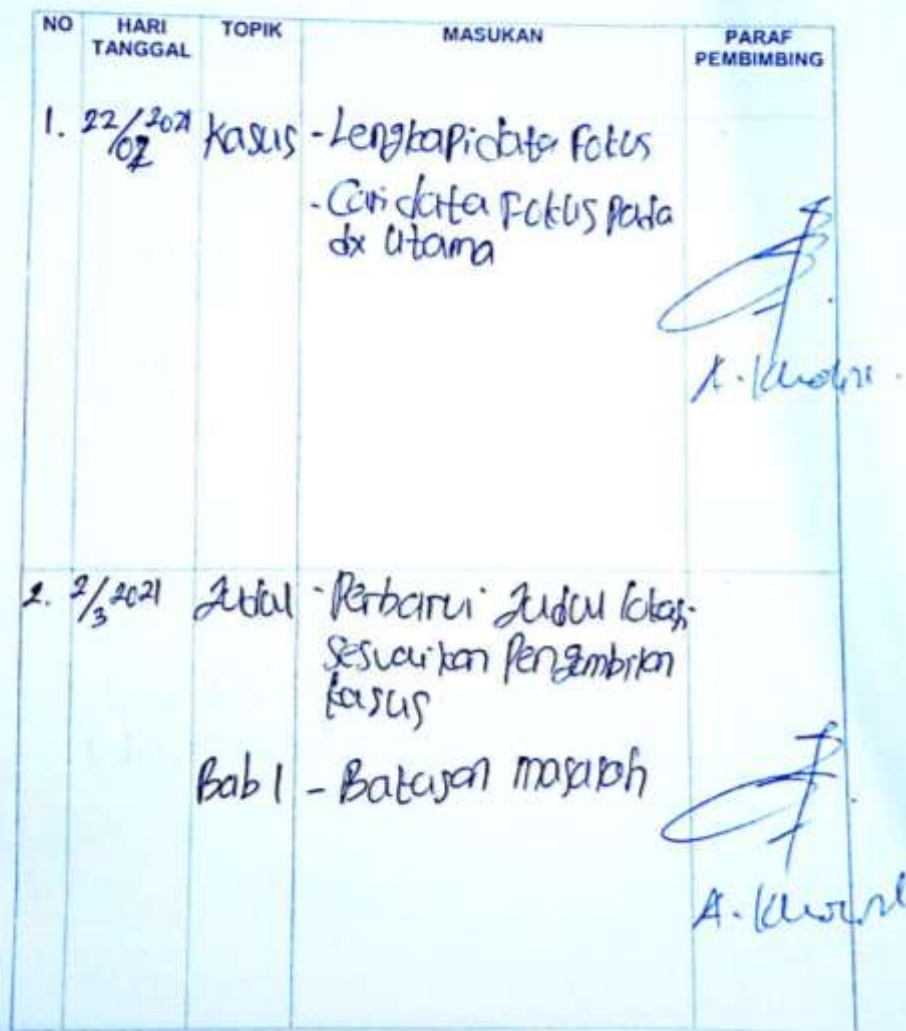 NO HARI TANGGAL TOPIK MASUKAN PARAF PEMBIMBING
1. 22/02 2021 Kasus - Lengkapi data Fokus
- Cari data Fokus Pada
dx Utama
2. 2/3 2021 Judul - Perbarui Judul lokasi
Sesuaikan Pengambilan
kasus
Bab 1 - Batasan masalah